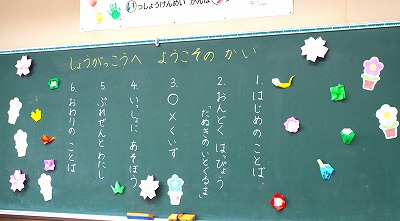 いっしょうけんめい がんば
しょうがっこうへ ようこそのかい
1.はじめのことば
2.おんどく はぴょう
「たぬきのいとぐるま」
3.○×くいず
4.いっしょに あそぼう
5.ぷれぜんとわたし
6.おわりのことば